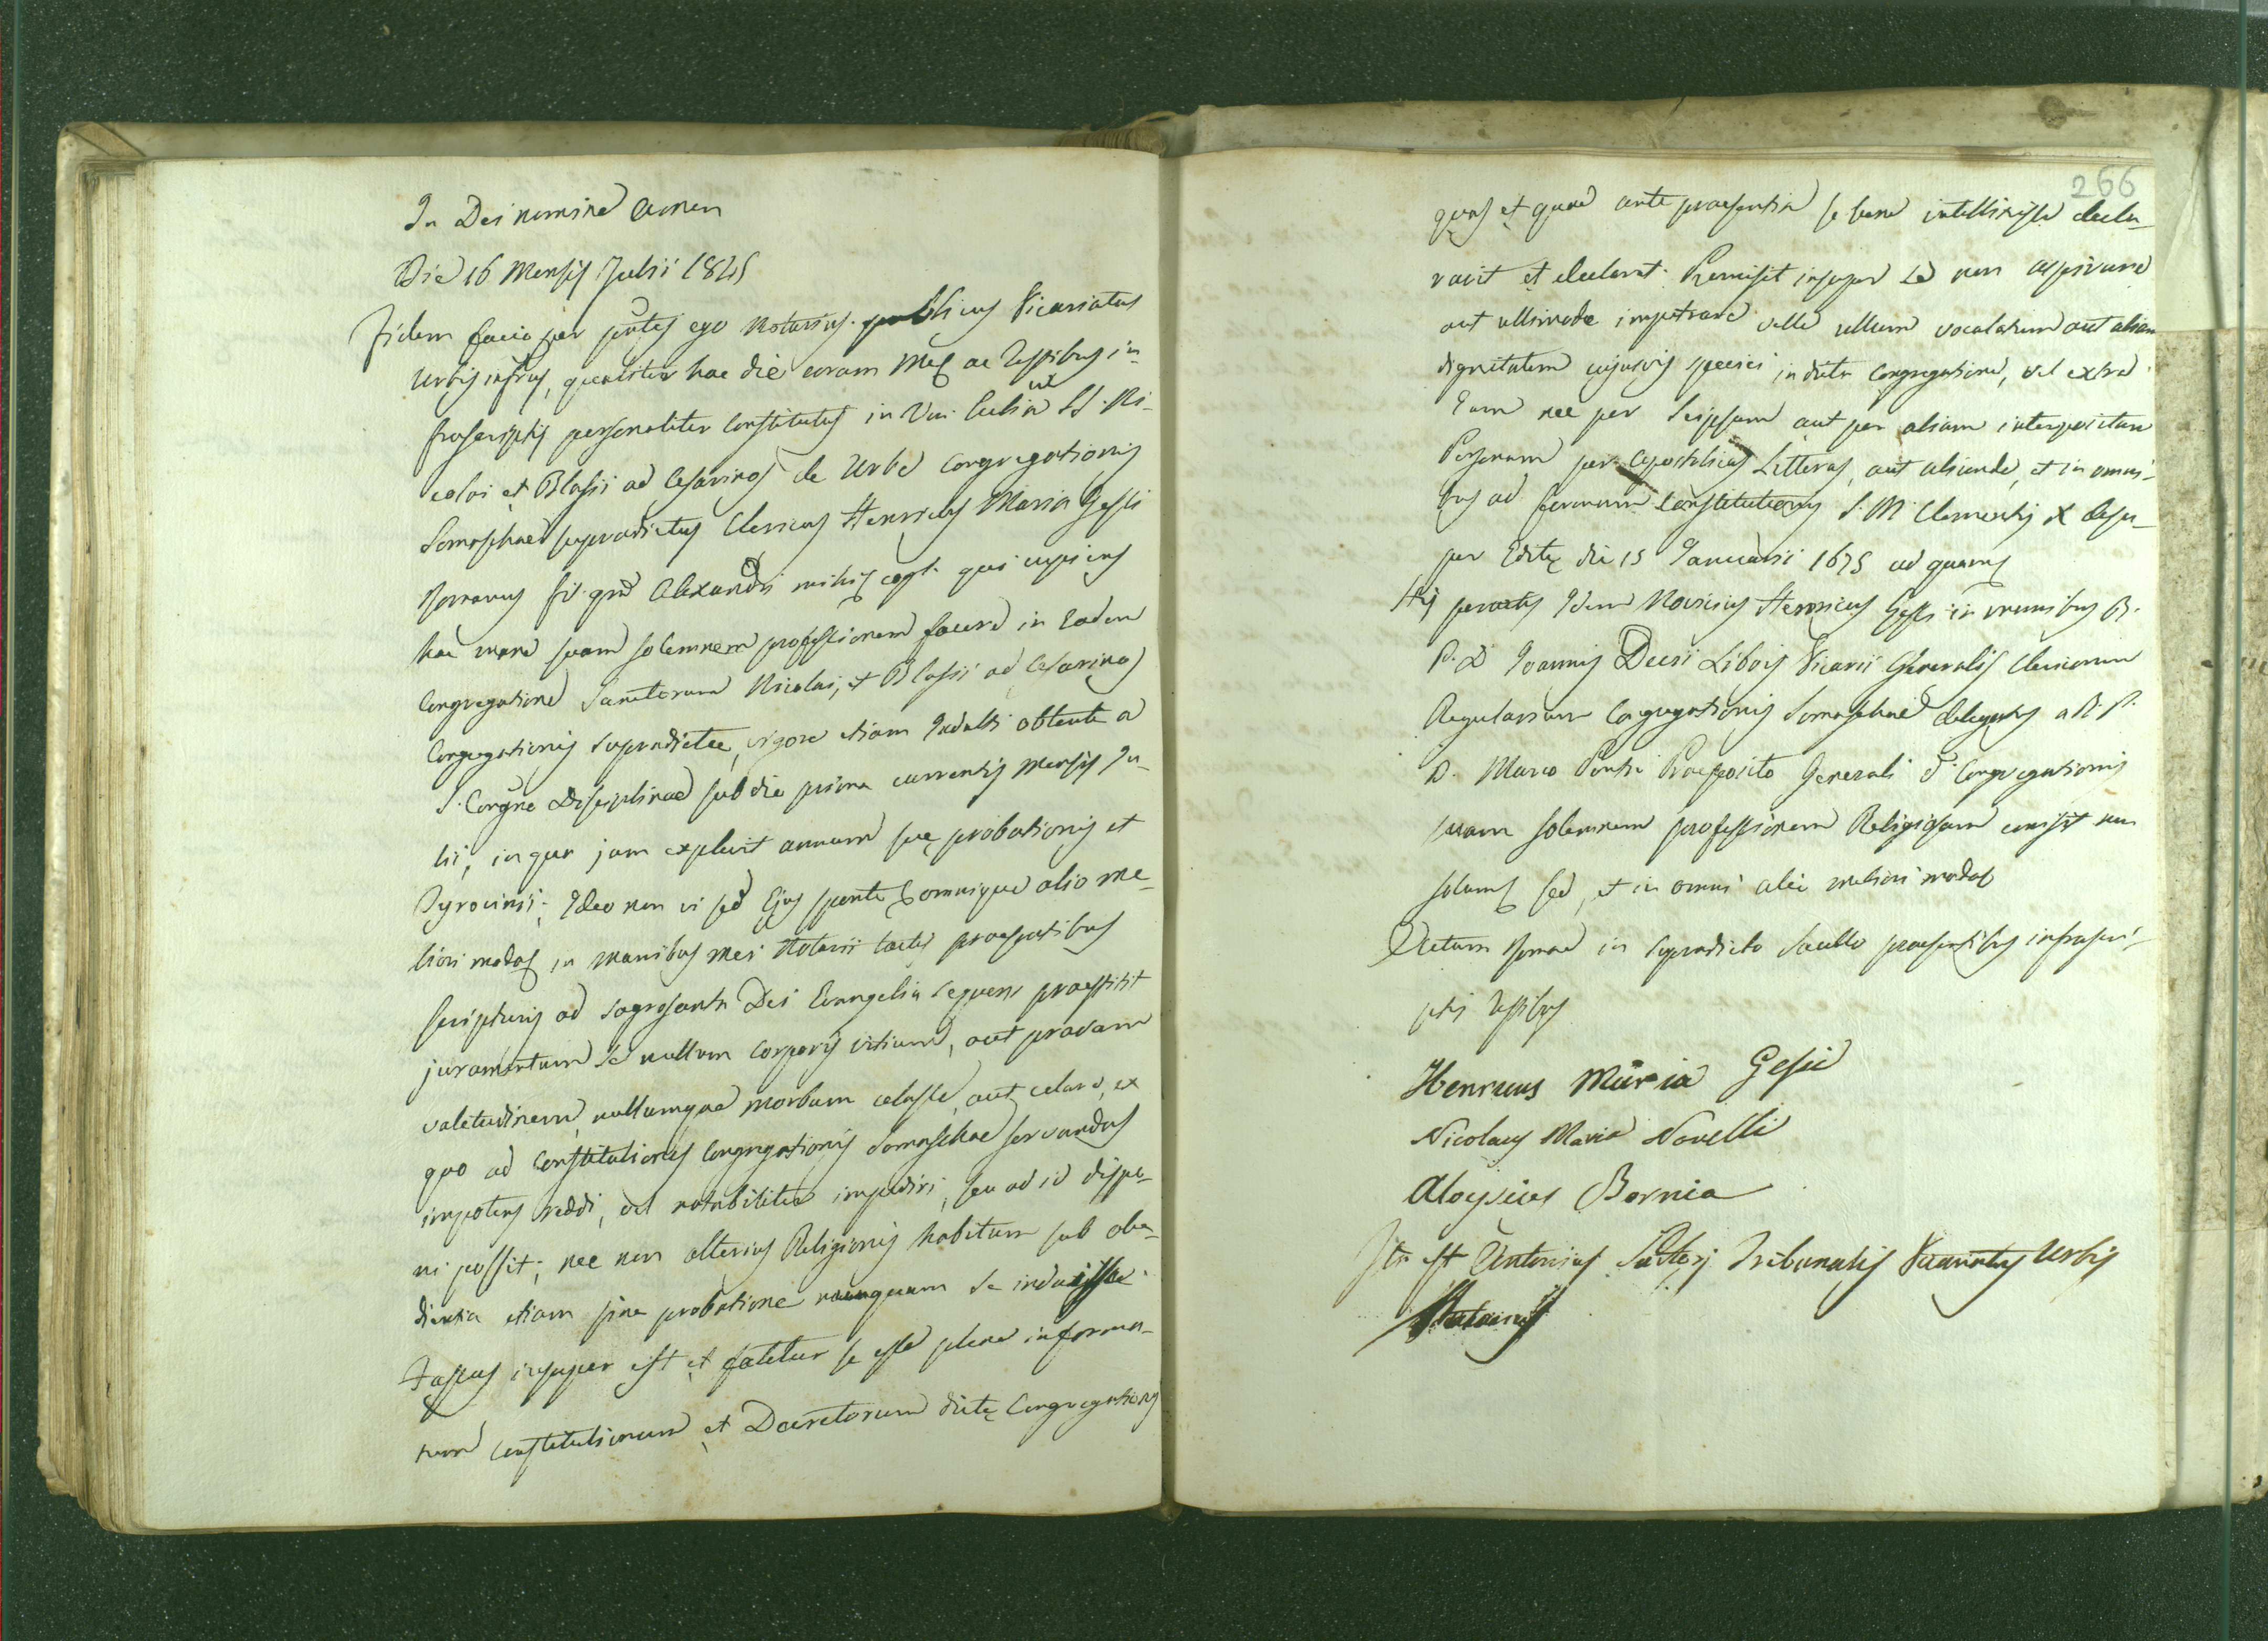 In Dei nomine Amen
Die 16 Mensis Julii 1845
Fidem facio per pntes ego Notarius publicus Vicariatus
Urbis infrus, qualiter hac die coram Meq ac Testibus in-
frascriptis personaliter constitutus in SS. Ni-
colai et Blasii ad Cesarinos de Urbe Congregationis
Somaschae supradictus Clericus Henricus Maria Gessi
Romanus fil. qm Alexandri mihiq cogt. qui cupiens
hac mane suam solemnem professionem facere in Eadem
Congregatione Sanctorum Nicolai, et Blasii ad Cesarinos
Congregationis supradictae, vigore etiam Indulti obtenti a
S. Congne Disciplinae sub die prima currentis Mensis Ju-
lii, in qua jam explevit annum suę probationis et
Tyrocinii; Ideo non vi sed Ejus sponte omnique alio me-
liori modoq in manibus mei Notarii tactis praesentibus
scripturis ad sagrosanta Dei Evangelia sequens praestitit
juramentum Se nullum corporis vitium, aut pravam
valetudinem, nullumque morbum celasse, aut celare, ex
quo ad Constitutiones Congregationis Somaschae servandas
impotens reddi, vel notabiliter impediri, seu ad id dispo-
ni possit; nec non alterius Religionis habitum sub obe-
dientia etiam sine probatione nunquam Se induisse.
Fassus insuper est et fatetur se esse plene informa-
tum Constitutionum et Decretorum dictę Congregationis
266
quas et quae ante praesentia se bene intellixisse decla-
ravit et declarat. Promisit insuper Se non aspirare
aut ullimode impetrare velle ullum vocalatum aut aliam
dignitatem cujusvis speciei in dicta Congregatione, vel extra
Eam nec per Seipsum aut per aliam interpositam
Personam per Apostolicas Litteras, aut aliunde, et in omni-
bus ad formam Constitutionis S. M. Clementis X desu-
per Editę die 15 Januarii 1675 ad quamq
His peractis Idem Novicius Henricus Gessi in manibus R.
P. D. Joannis Decii Libois Vicarii Generalis Clericorum
Regularium Congregationis Somaschae delegatus a R. P.
D. Marco Ponta Praeposito Generali d. Congregationis
suam solemnem professionem Religiosam emisit non
solumq sed, et in omni alio meliori modoq
Actum Romae in supradicto Sacello praesentibus infrascri-
ptis Testibus
Henricus Maria Gessi
Nicolaus Maria Novelli
Aloysius Bornia
Ita est Antonius Tribunalis Vicariatus Urbis
Notarius